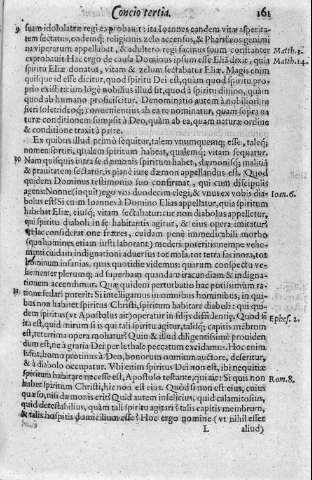 Concio tertia. 161
suum idololatræ regi exprobauit: ita Ioannes eandem vitæ asperitatem sectatus, eodemq; religionis zelo accensus, & Pharisæos genimina viperarum appellabat, & adultero regi facinus suum constanter Matth. 3.
exprobauit. Hac ergo de causa Dominus ipsum esse Eliã dexit, quia Matth. 14.
spiritu Eliæ donatus, vitam & zelum sectabatur Eliæ. Magis cum
quisque id esse dicitur, quod spiritu Dei est, quàm quod spiritu proprio
existit: cum longè nobilius illud sit, quod à spiritu diuino, quàm
quod ab humano proficiscitur. Denominatio autem à nobiliori
fieri solet: ideoq; conuenientius ab ea re nominatur, quam supra naturæ
conditionem sumpsit à Deo, quàm ab ea, quam naturæ ordine
& conditione traxit à patre.
Ex quibus illud primò sequitur, talem vnumquemq; esse, taleq;
nomen sortiri, qualem spiritum habeat, qualemq; vitam sequatur.
30 Nam quisquis intra se dæmonis spiritum habet, dæmonisq; malitiã
& prauitatem sectatur, is planè iure dæmon appellandus est. Quod
quidem Dominus testimonio suo confirmat, qui cum discipulis
agens: Nonne (inquit) ego vos duodecim elegi, & vnus ex vobis diabolus Ioan. 6.
est? Si cum Ioannes à Domino Elias appellatur, quia spiritum
habebat Eliæ, eiusq; vitam sectabatur: cur non diabolus appelletur,
qui spiritu diaboli in se habitantis agitur, & eius opera imitatur?
Hæc considerate fratres, cuidam penè immedicabili morbo
(quo homines etiam iusti laborant) mederi poteritis: nempe vehementi
cuidam indignationi aduersus tot mala, tot tetra facinora, tot
hominum insanias, quas quotidie videmus: quarum conspectu vehementer
plerumq; ad superbam quandam iracundiam & indignationem
accendimur. Quæ quidem perturbatio hac potissimum ratione
sedari poterit: Si intelligamus in omnibus hominibus, in quibus
non habet spiritus Christi, spiritum habitare diaboli: qui quidem
spiritus (vt Apostolus ait) operatur in filijs diffidentiæ. Quod si
ita est, quid mirum si is qui tali spiritu agitur, talisq; capitis membrum Ephes. 2.
est, teterrima opera moliatur? Quin & illud diligentissimè prouidendum
est, ne à gratia Dei per lethale peccatum excidamus. Hoc enim
si sit, homo protinus à Deo, bonorum omnium auctore, deseritur,
& à diabolo occupatur. Vbi enim spiritus Dei non est, ibi nequitiæ
spiritum habitare necesse est, Apostolo testante, qui ait: Si quis non Rom. 8.
habet spiritum Christi, hic non est eius. Quòd si non est eius, cuius
quæso, nisi dæmonis erit? Quid autem infelicius, quid calamitosius,
quid detestabilius, quàm tali spiritu agitari? talis capitis membrum,
& talis hospitis domicilium esse? Hoc ergo nomine (vt nihil esset
L aliud)